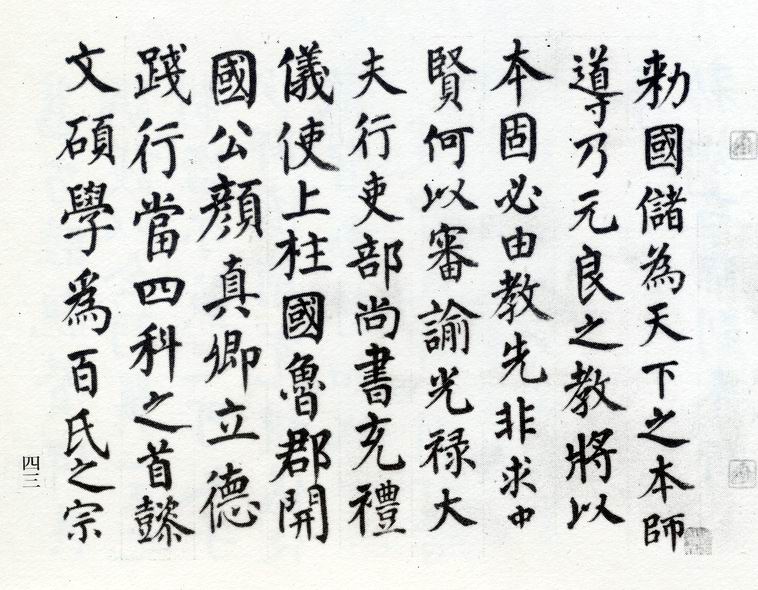 勅國儲為天下之本師
導乃元良之教將以
本固必由教先非求中
賢何以審諭光禄大
夫行吏部尚書充禮
儀使上柱國魯郡開
國公顔真卿立德
踐行當四科之首懿
文碩學爲百氏之宗
四三